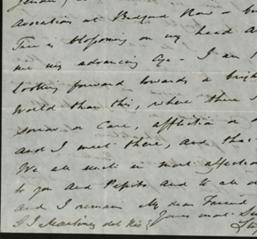 avocation at Bedford Row -
Time is blossoming on my head
me my advancing Age - I am
looking forward towards a brigh
World than this, where there
sorrow or Care, affliction or
and I meet there, and that
We all unite in most affection
to you and Pepita and to all
and I remain My dear Friend
Yours most